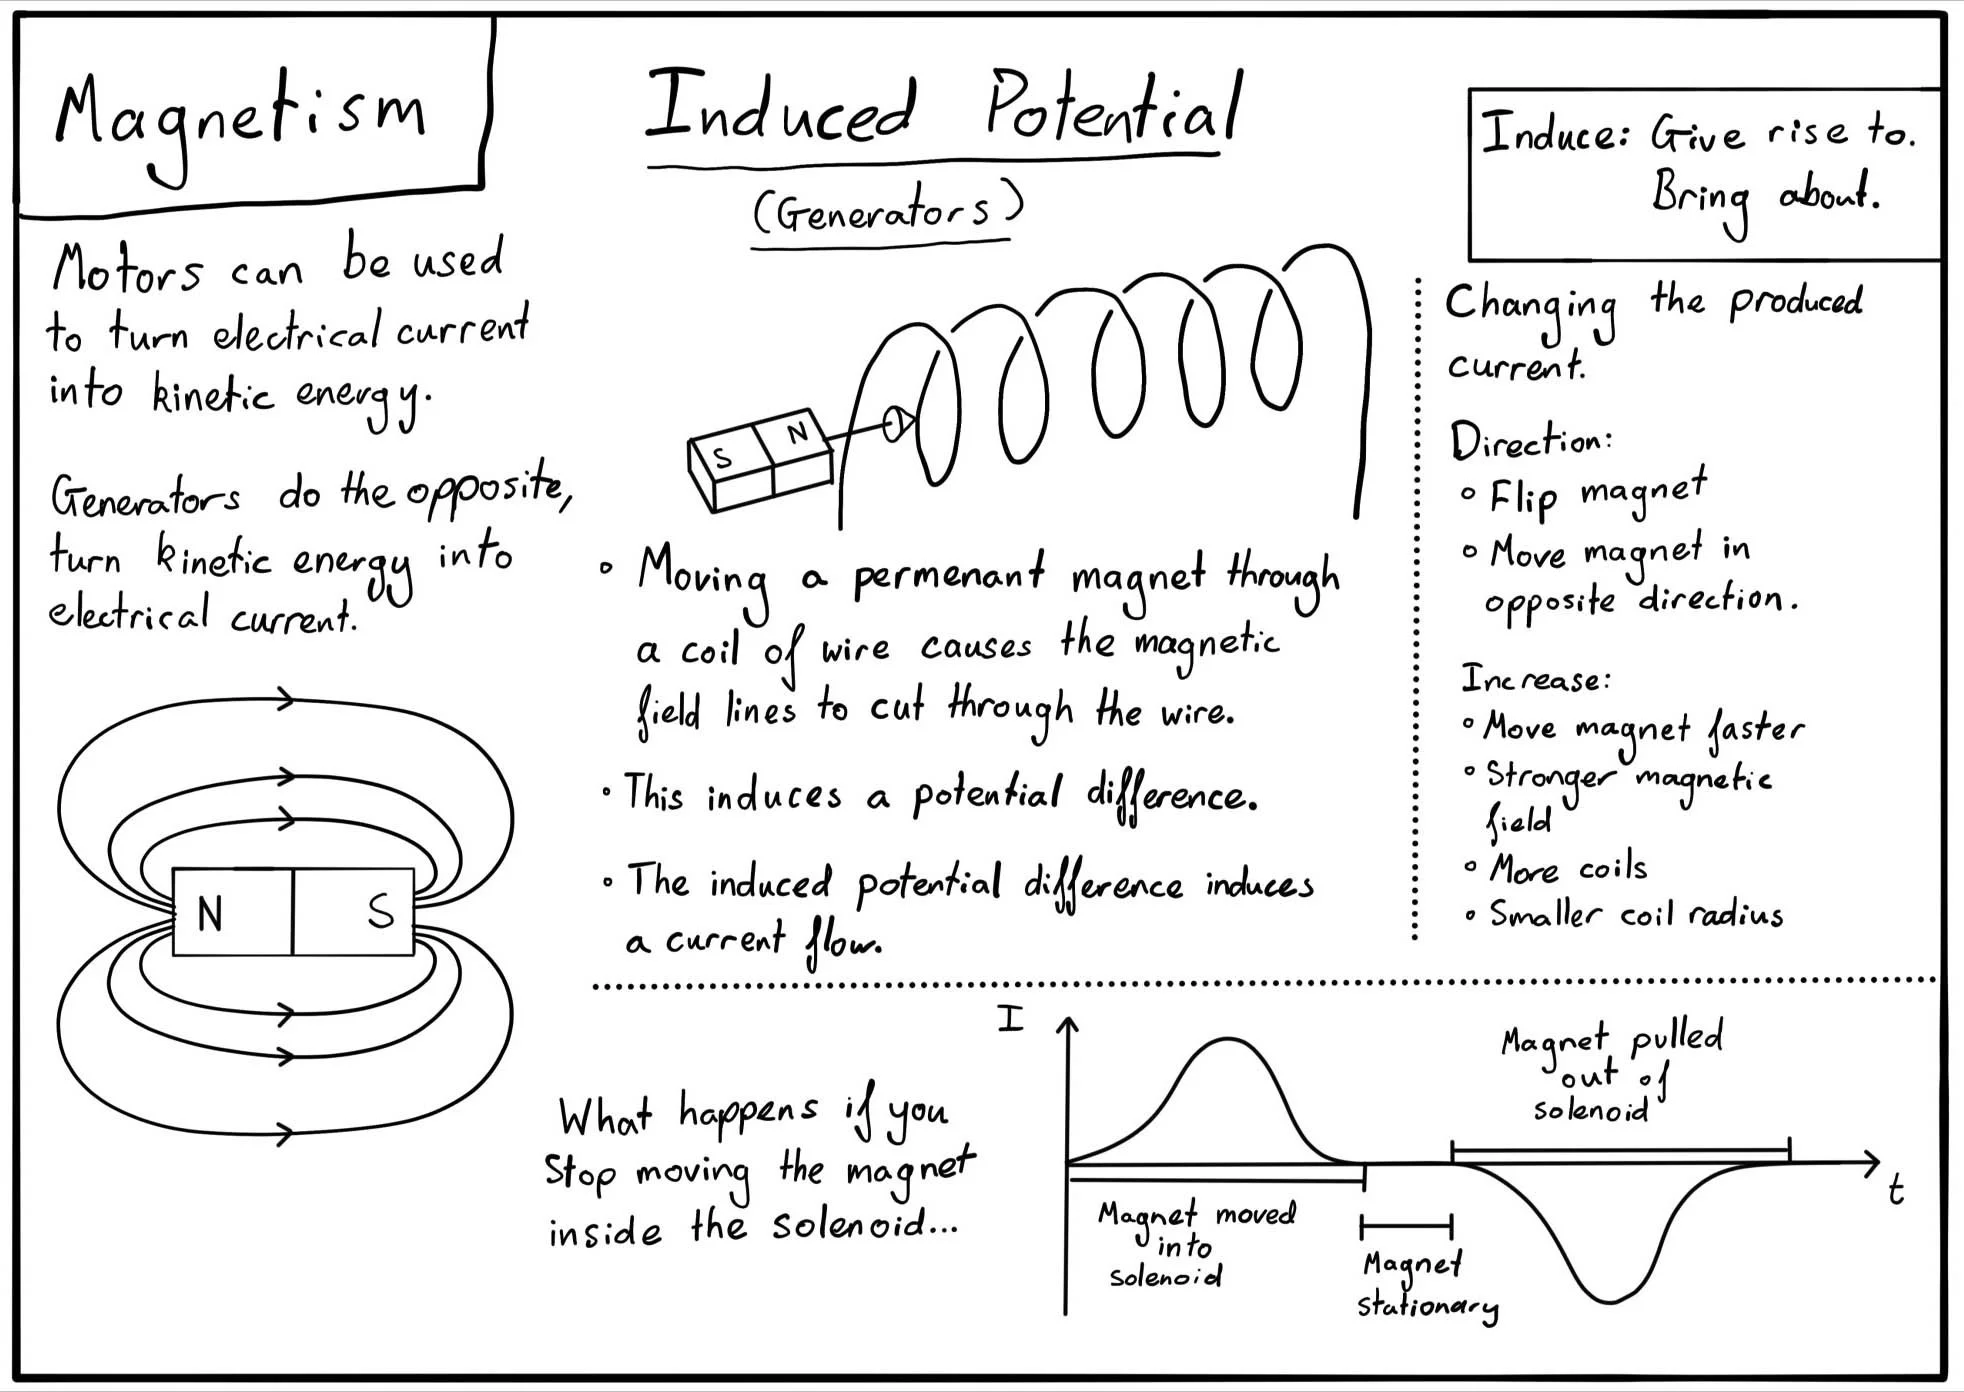 Magnetism
Induced Potential
(Generators)
Induce: Give rise to.
Bring about.
Motors can be used
to turn electrical current
into kinetic energy.
Generators do the opposite,
turn kinetic energy into
electrical current.
N S
S N
• Moving a permenant magnet through
a coil of wire causes the magnetic
field lines to cut through the wire.
• This induces a potential difference.
• The induced potential difference induces
a current flow.
Changing the produced
current.
Direction:
• Flip magnet
• Move magnet in
opposite direction.
Increase:
• Move magnet faster
• Stronger magnetic
field
• More coils
• Smaller coil radius
What happens if you
Stop moving the magnet
inside the solenoid...
I
Magnet moved
into
solenoid
Magnet
stationary
Magnet pulled
out of
solenoid
t